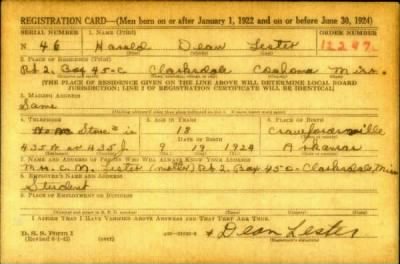 REGISTRATION CARD—(Men born on or after January 1, 1922 and on or before June 30, 1924)
SERIAL NUMBER 1. NAME (Print) ORDER NUMBER
N 46 Harold Dean Lester 12297
2. PLACE OF RESIDENCE (Print)
Rt 2. Box 45-C Clarksdale Coahoma Miss.
[THE PLACE OF RESIDENCE GIVEN ON THE LINE ABOVE WILL DETERMINE LOCAL BOARD
JURISDICTION; LINE 2 OF REGISTRATION CERTIFICATE WILL BE IDENTICAL]
3. MAILING ADDRESS
Same
4. TELEPHONE 5. AGE IN YEARS 6. PLACE OF BIRTH
18 Crawfordsville
DATE OF BIRTH
9 19 1924 Arkansas
7. NAME AND ADDRESS OF PERSON WHO WILL ALWAYS KNOW YOUR ADDRESS
Lester (mother) Rt 2. Box 45-C. Clarksdale, Miss
8. EMPLOYER'S NAME AND ADDRESS
Student
9. PLACE OF EMPLOYMENT OR BUSINESS
I AFFIRM THAT I HAVE VERIFIED ABOVE ANSWERS AND THAT THEY ARE TRUE.
D. S. S. Form 1 (over) Dean Lester